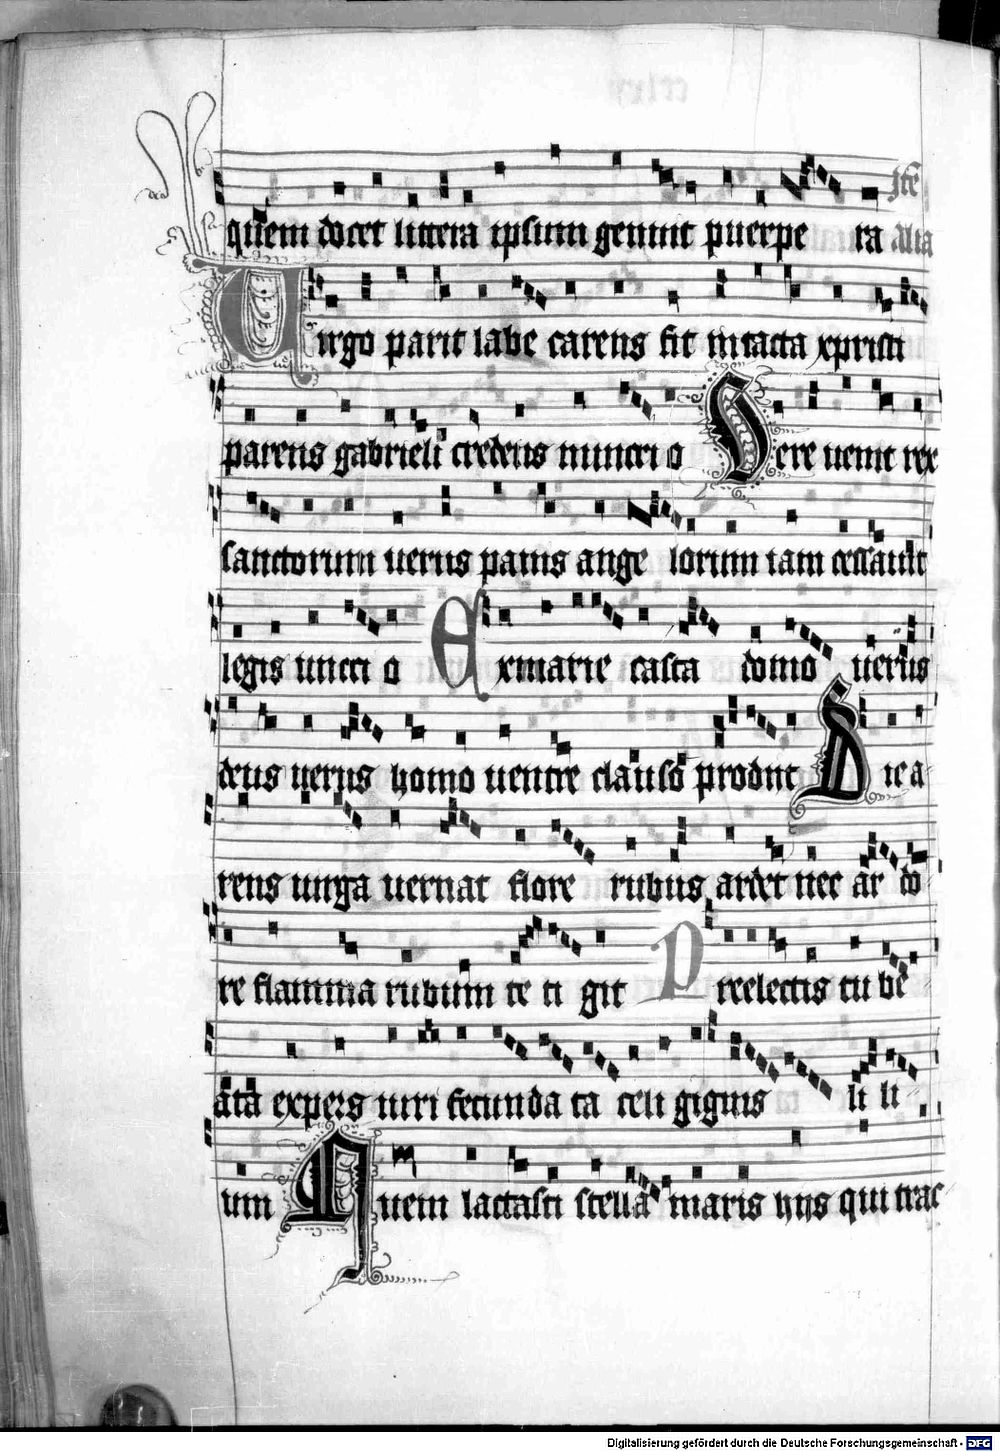 quem docet littera ipsum genuit puerpe ra alia
Jtē
Uirgo parit labe carens fit intacta xpristi
parens gabrieli credens nunccio Sere uenit rex
sanctorum uerus panis ange lorum iam cessauit
legis unccio Ex marie casta domo uerus
deus uerus homo uentre clauso prodiit Sic a
rens uirga uernat flore rubus ardet nec ar do
re flamma rubum te ti git Preelectis tu be
ata expers uiri fecunda ta celi gignis li li
um Quem lactasti stella maris hiis qui trac
Digitalisierung gefördert durch die Deutsche Forschungsgemeinschaft - DFG